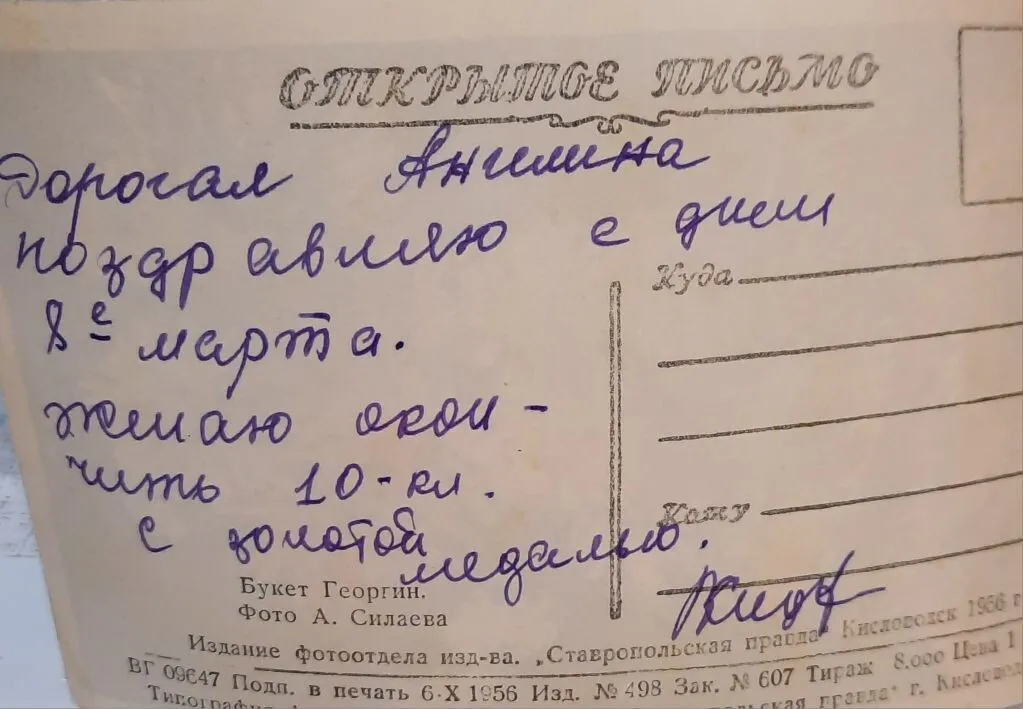 ОТКРЫТОЕ ПИСЬМО
Дорогая Ангилина
поздравляю с днем
8е марта.
желаю окон-
чить 10-кл.
с золотой медалью.
Куда
Кому
Букет Георгин.
Фото А. Силаева
Издание фотоотдела изд-ва. „Ставропольская правда" Кисловодск 1956 г
ВГ 09647 Подп. в печать 6·X 1956 Изд. № 498 Зак. № 607 Тираж 8.000 Цена 1
Типография правда" г. Кисловодск